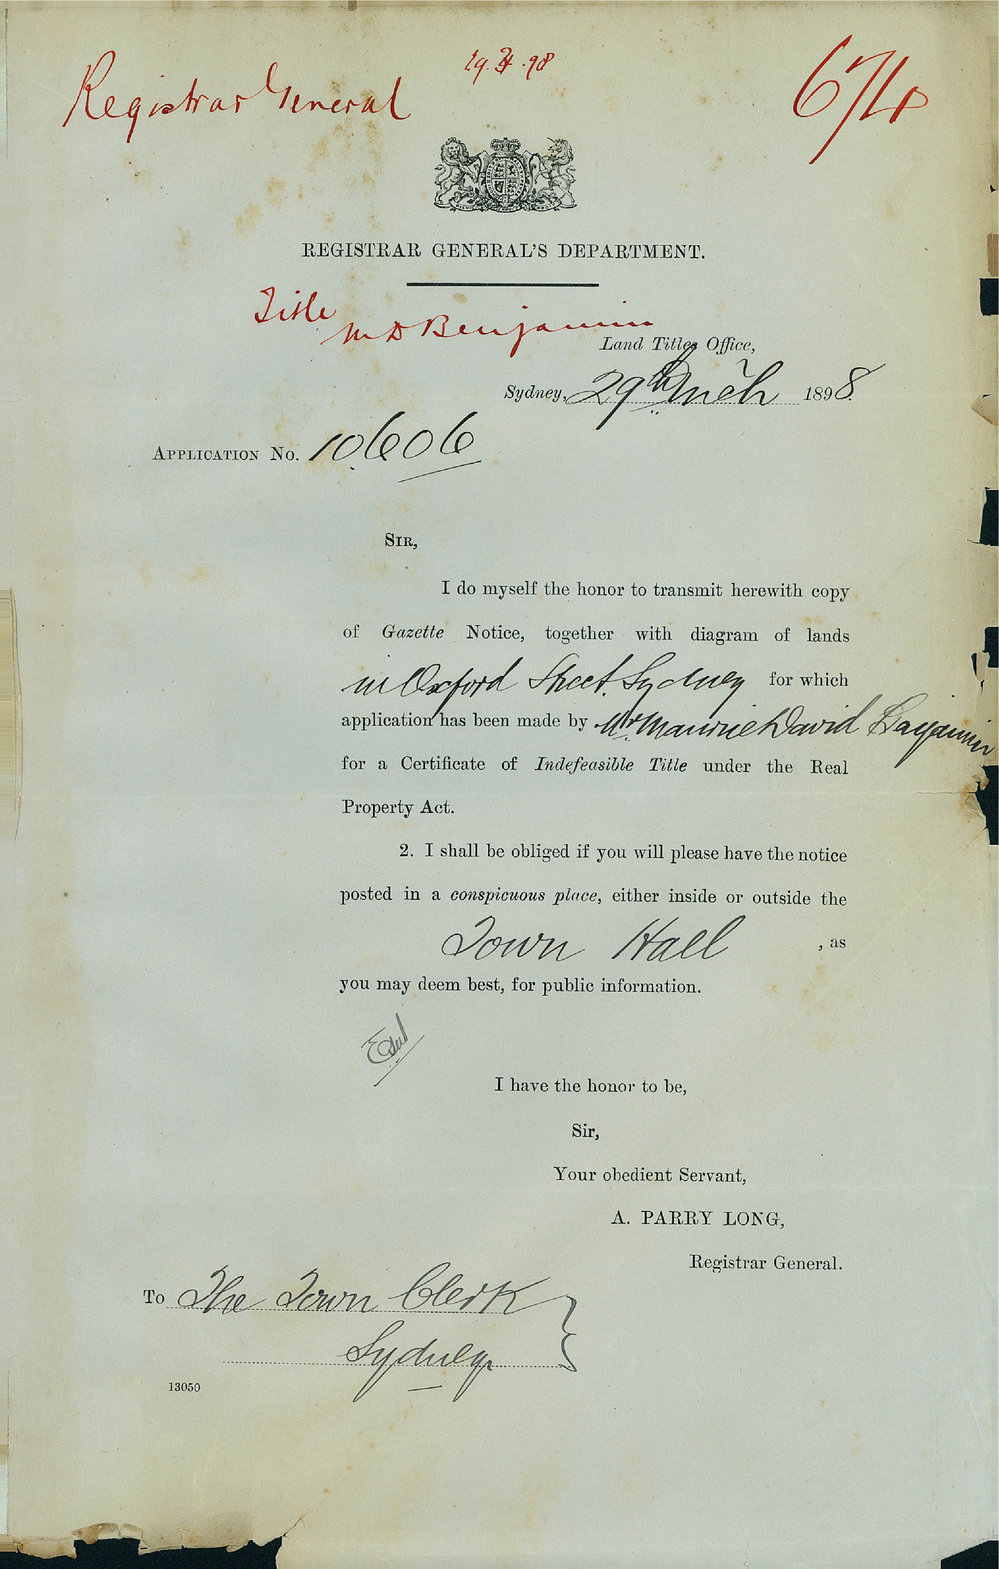 Registrar General
29.3.98
674
REGISTRAR GENERAL'S DEPARTMENT.
Title
M D Benjamin
Land Titles Office,
Sydney, 29th Mch 1898.
APPLICATION No. 10606
SIR,
I do myself the honor to transmit herewith copy
of Gazette Notice, together with diagram of lands
in Oxford Street, Sydney for which
application has been made by Mr. Maurice David Benjamin
for a Certificate of Indefeasible Title under the Real
Property Act.
2. I shall be obliged if you will please have the notice
posted in a conspicuous place, either inside or outside the
Town Hall , as
you may deem best, for public information.
I have the honor to be,
Sir,
Your obedient Servant,
A. PARRY LONG,
Registrar General.
To The Town Clerk
Sydney.
13050